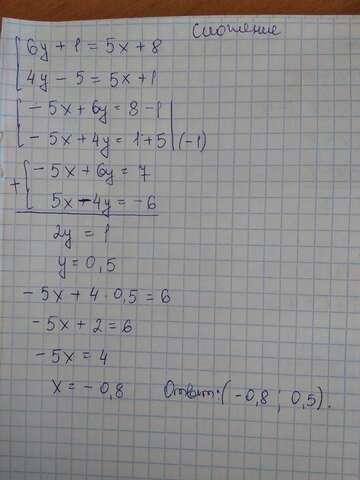 Сложение
6y + 1 = 5x + 8
4y - 5 = 5x + 1
- 5x + 6y = 8 - 1
- 5x + 4y = 1 + 5 | (-1)
+ - 5x + 6y = 7
5x - 4y = - 6
2y = 1
y = 0,5
- 5x + 4 · 0,5 = 6
- 5x + 2 = 6
- 5x = 4
x = - 0,8 Ответ: (-0,8 ; 0,5).